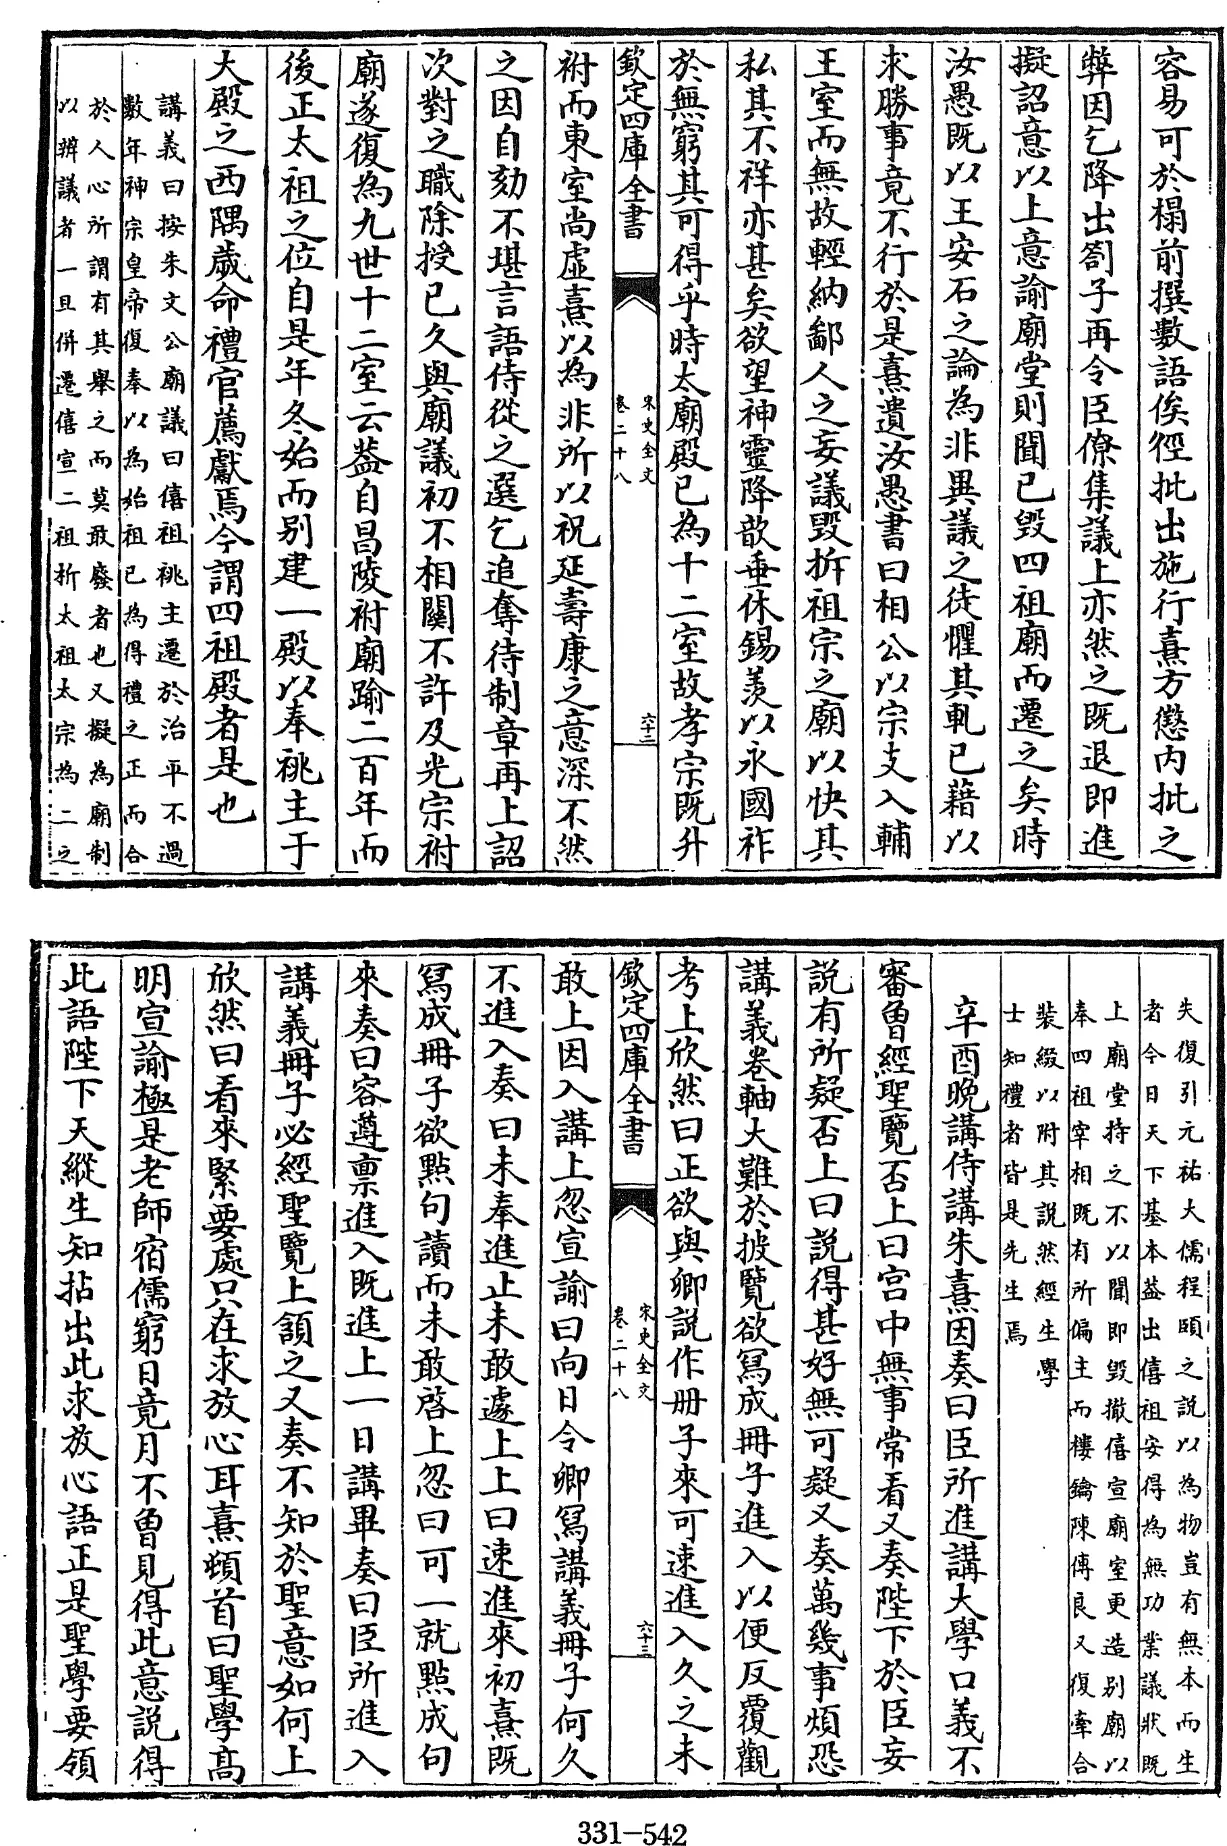 容易可於榻前撰數語俟徑批出施行熹方懲內批之
弊因乞降出劄子再令臣僚集議上亦然之既退即進
擬詔意以上意諭廟堂則聞已毀四祖廟而遷之矣時
汝愚既以王安石之論為非異議之徒懼其軋已藉以
求勝事竟不行於是熹遺汝愚書曰相公以宗支入輔
王室而無故輕納鄙人之妄議毀拆祖宗之廟以快其
私其不祥亦甚矣欲望神靈降歆垂休錫羨以永國祚
於無窮其可得乎時太廟殿已為十二室故孝宗既升
欽定四庫全書
宋史全文
卷二十八
六十二
祔而東室尚虛熹以為非所以祝延壽康之意深不然
之因自劾不堪言語侍從之選乞追奪待制章再上詔
次對之職除授已久與廟議初不相關不許及光宗祔
廟遂復為九世十二室云葢自昌陵祔廟踰二百年而
後正太祖之位自是年冬始而别建一殿以奉祧主于
大殿之西隅歲命禮官薦獻焉今謂四祖殿者是也
講義曰按朱文公廟議曰僖祖祧主遷於治平不過
數年神宗皇帝復奉以為始祖已為得禮之正而合
於人心所謂有其舉之而莫敢廢者也又擬為廟制
以辨議者一旦併遷僖宣二祖析太祖太宗為二之
失復引元祐大儒程頤之說以為物豈有無本而生
者今日天下基本葢出僖祖安得為無功業議狀既
上廟堂持之不以聞即毀撤僖宣廟室更造别廟以
奉四祖宰相既有所偏主而樓鑰陳傅良又復牽合
裝綴以附其說然經生學
士知禮者皆是先生焉
辛酉晚講侍講朱熹因奏曰臣所進講大學口義不
審曾經聖覽否上曰宮中無事常看又奏陛下於臣妄
說有所疑否上曰說得甚好無可疑又奏萬幾事煩恐
講義卷軸大難於披覽欲寫成冊子進入以便反覆觀
考上欣然曰正欲與卿說作冊子來可速進入久之未
欽定四庫全書
宋史全文
卷二十八
六十三
敢上因入講上忽宣諭曰向日令卿寫講義冊子何久
不進入奏曰未奉進止未敢遽上上曰速進來初熹既
寫成冊子欲點句讀而未敢啓上忽曰可一就點成句
來奏曰容遵禀進入既進上一日講畢奏曰臣所進入
講義冊子必經聖覽上頷之又奏不知於聖意如何上
欣然曰看來緊要處只在求放心耳熹頓首曰聖學高
明宣諭極是老師宿儒窮日竟月不曾見得此意說得
此語陛下天縱生知拈出此求放心語正是聖學要領
331-542